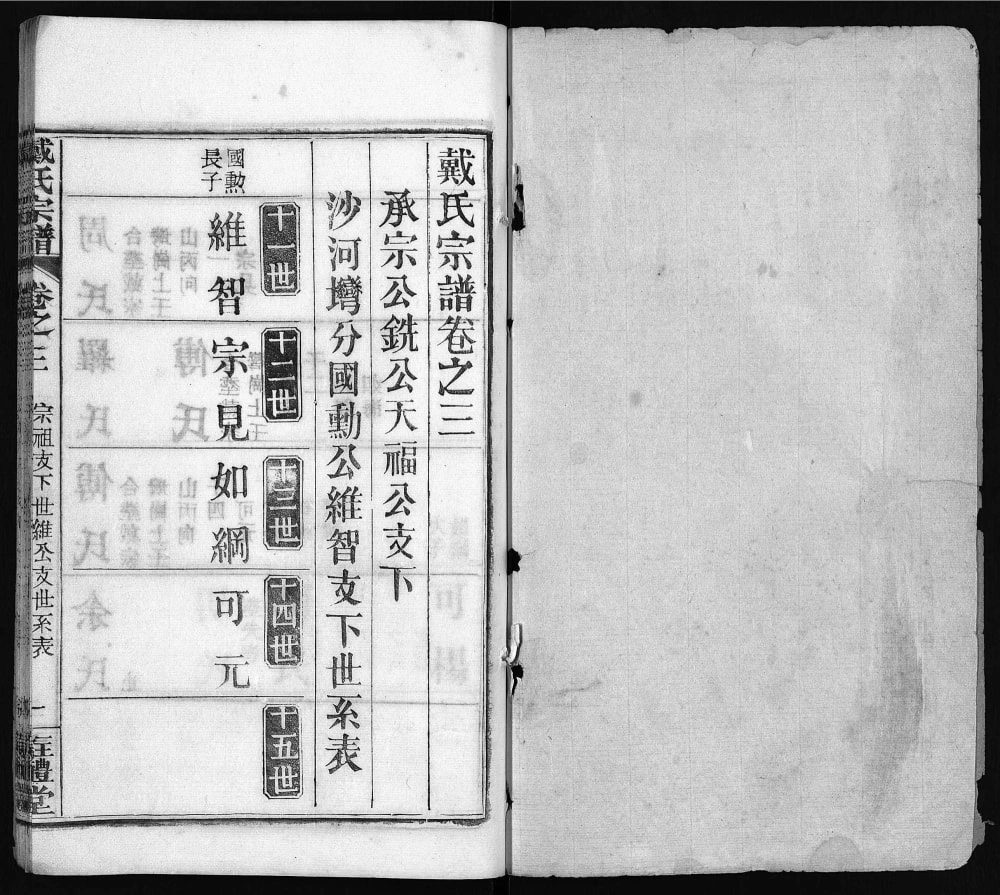 戴氏宗譜卷之三
承宗公銑公天福公支下
沙河灣分國勳公維智支下世系表
十一世
十二世
十三世
十四世
十五世
國勳
長子
維智
宗見
如綱
可元
戴氏宗譜
卷之三
宗祖支下世維公支世系表
一
禮堂